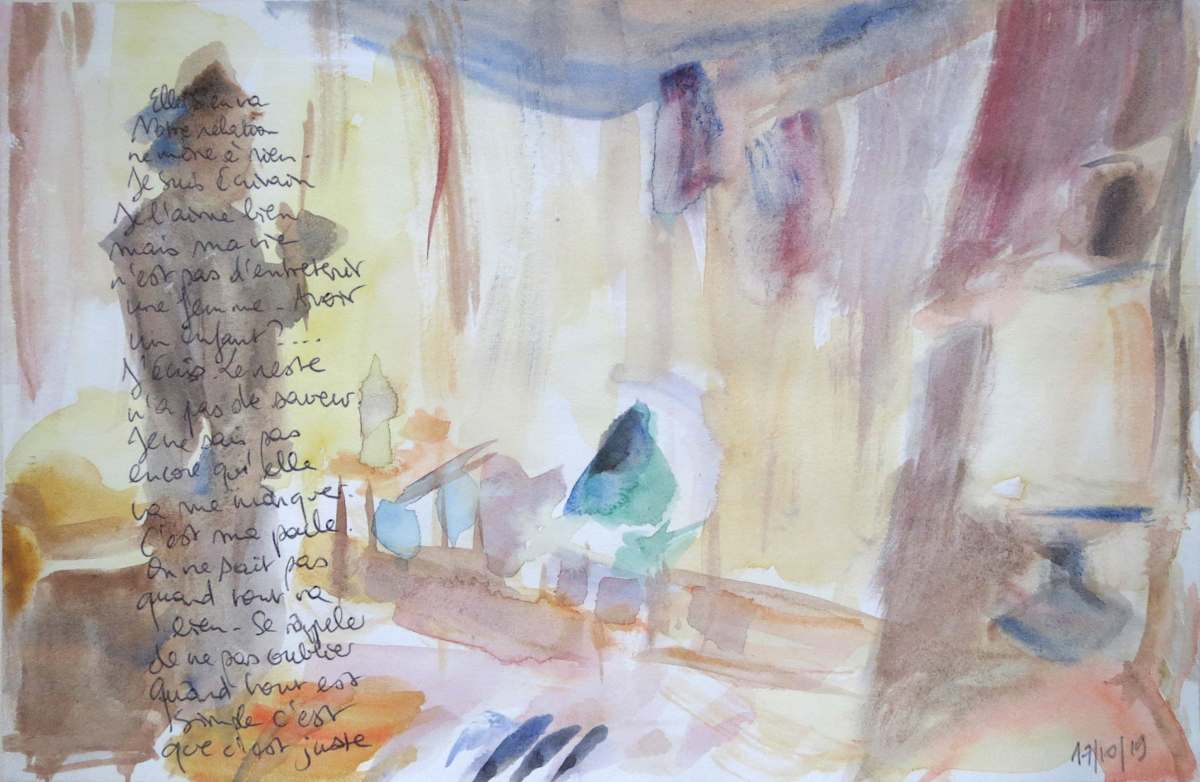 Elle s'en va
Notre relation
ne mène à rien.
Je suis écrivain
Je l'aime bien
mais ma vie
n'est pas d'entretenir
une femme - Avoir
un enfant?....
J'écris. Le reste
n'a pas de saveur.
Je ne sais pas
encore qu'elle
va me manquer.
C'est ma faute.
On ne sait pas
quand tout va
bien - Se rappeler
de ne pas oublier
Quand tout est
simple c'est
que c'est juste
17/10/19